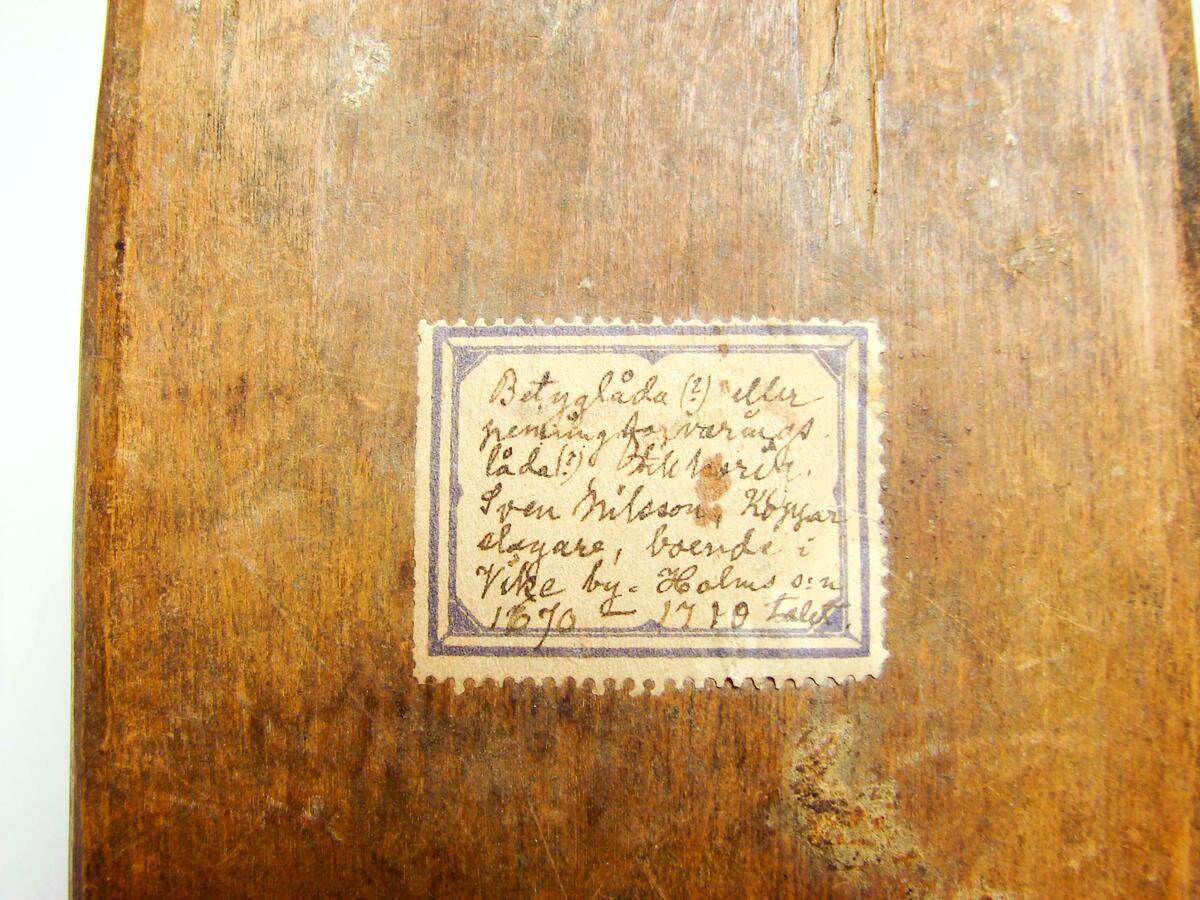 Betyglåda (?) eller
penningförvarings
låda (?)
Sven Nilsson, Koppar
slagare, boende i
Vike by. Holms s:n
1670 – 1710 talet.